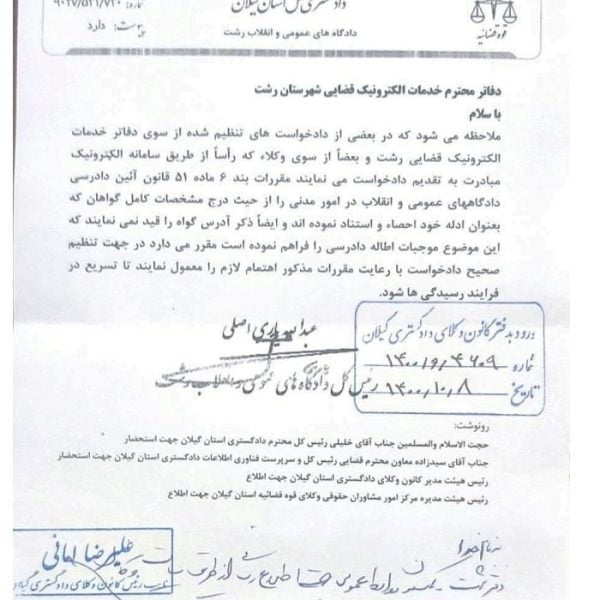 دادگستری کل استان گیلان
دادگاه های عمومی و انقلاب رشت
شماره: ۹۰۲۷/۵۲۱/۷۲۰
پیوست: دارد
قوه قضائیه
دفاتر محترم خدمات الکترونیک قضایی شهرستان رشت
با سلام
ملاحظه می شود که در بعضی از دادخواست های تنظیم شده از سوی دفاتر خدمات
الکترونیک قضایی رشت و بعضاً از سوی وکلاء که رأساً از طریق سامانه الکترونیک
مبادرت به تقدیم دادخواست می نمایند مقررات بند ۶ ماده ۵۱ قانون آئین دادرسی
دادگاههای عمومی و انقلاب در امور مدنی را از حیث درج مشخصات کامل گواهان که
بعنوان ادله خود احصاء و استناد نموده اند و ایضاً ذکر آدرس گواه را قید نمی نمایند که
این موضوع موجبات اطاله دادرسی را فراهم نموده است مقرر می دارد در جهت تنظیم
صحیح دادخواست با رعایت مقررات مذکور اهتمام لازم را معمول نمایند تا تسریع در
فرایند رسیدگی ها شود.
عبدالله یاری اصلی
رئیس کل دادگاه های عمومی و انقلاب رشت
ورود به دفتر کانون وکلای دادگستری گیلان
شماره
تاریخ ۱۴۰۰,۱۰,۸
رونوشت:
حجت الاسلام والمسلمین جناب آقای خلیلی رئیس کل محترم دادگستری استان گیلان جهت استحضار
جناب آقای سیدزاده معاون محترم قضایی رئیس کل و سرپرست فناوری اطلاعات دادگستری استان گیلان جهت استحضار
رئیس هیئت مدیر کانون وکلای دادگستری استان گیلان جهت اطلاع
رئیس هیئت مدیره مرکز امور مشاوران حقوقی وکلای قوه قضائیه استان گیلان جهت اطلاع
علیرضا امانی
نایب رئیس کانون وکلای دادگستری گیلان